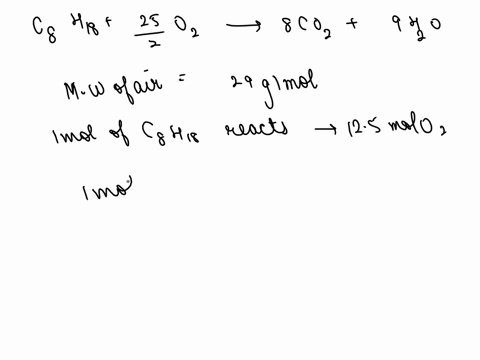 C₈H₁₈ + 25/2 O₂ ⟶ 8CO₂ + 9H₂O
M.W of air = 29 g/mol
1mol of C₈H₁₈ reacts → 12.5 mol O₂
1 mo